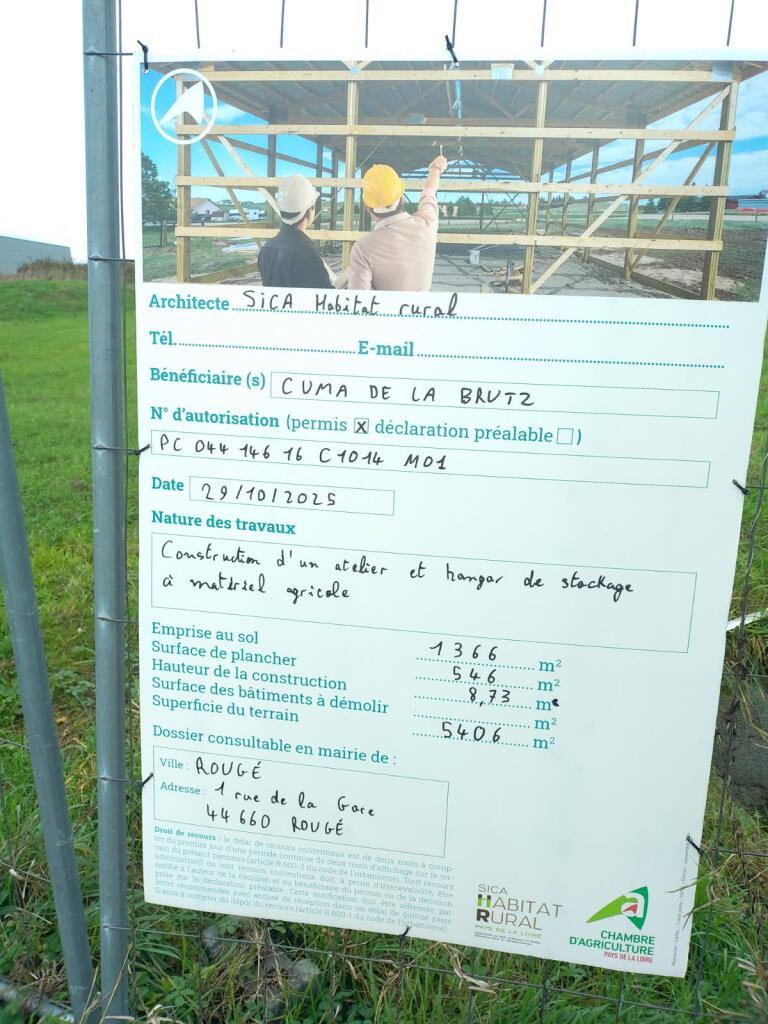 Architecte SICA Habitat rural
Tél. E-mail
Bénéficiaire (s) CUMA DE LA BRUTZ
N° d'autorisation (permis X déclaration préalable )
PC 044 146 16 C1014 M01
Date 29/10/2025
Nature des travaux
Construction d'un atelier et hangar de stockage
à matériel agricole
Emprise au sol 1366 m²
Surface de plancher 546 m²
Hauteur de la construction 8,73 m
Surface des bâtiments à démolir m²
Superficie du terrain 5406 m²
Dossier consultable en mairie de :
Ville : ROUGÉ
Adresse : 1 rue de la Gare
44660 ROUGÉ
Droit de recours : le délai de recours contentieux est de deux mois à comp-
ter du premier jour d'une période continue de deux mois d'affichage sur le ter-
rain du présent panneau (article R.600-2 du code de l'urbanisme). Tout recours
administratif ou tout recours contentieux doit, à peine d'irrecevabilité, être
notifié à l'auteur de la décision et au bénéficiaire du permis ou de la décision
prise sur la déclaration préalable. Cette notification doit être adressée par
lettre recommandée avec accusé de réception dans un délai de quinze jours
francs à compter du dépôt du recours (article R.600-1 du code de l'urbanisme).
SICA
HABITAT
RURAL
PAYS DE LA LOIRE
CHAMBRE
D'AGRICULTURE
PAYS DE LA LOIRE